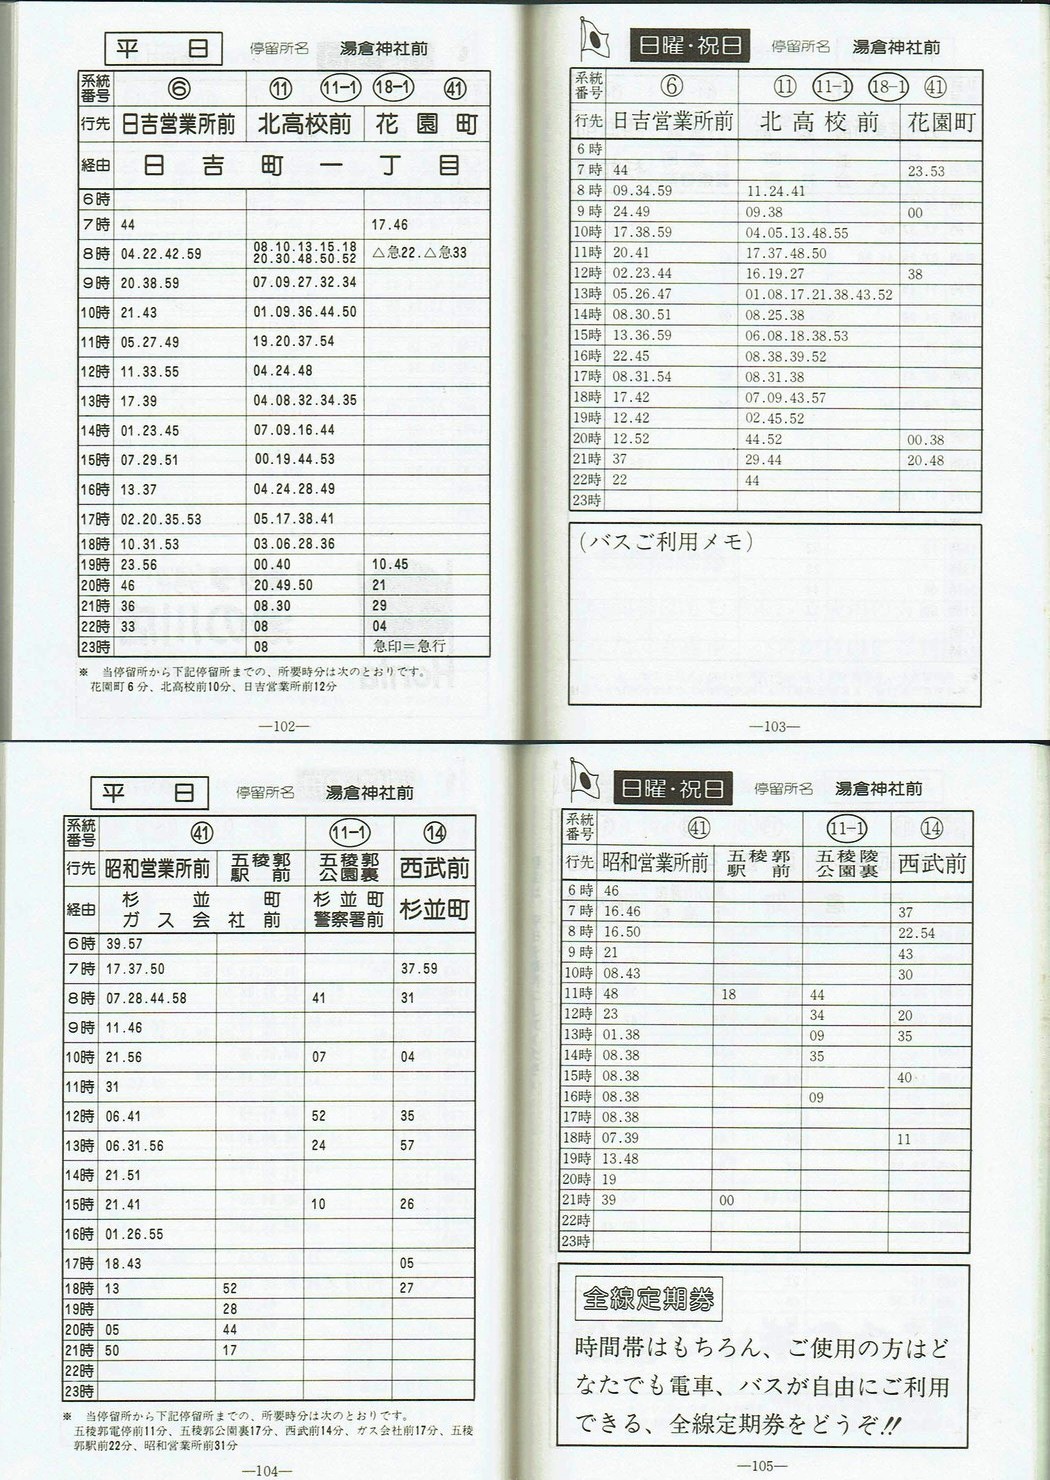 平日 停留所名 湯倉神社前
系統番号 ⑥ ⑪ 11-1 18-1 ㊶
行先 日吉営業所前 北高校前 花園町
経由 日吉町一丁目
6時
7時 44 17.46
8時 04.22.42.59 08.10.13.15.18 △急22.△急33
20.30.48.50.52
9時 20.38.59 07.09.27.32.34
10時 21.43 01.09.36.44.50
11時 05.27.49 19.20.37.54
12時 11.33.55 04.24.48
13時 17.39 04.08.32.34.35
14時 01.23.45 07.09.16.44
15時 07.29.51 00.19.44.53
16時 13.37 04.24.28.49
17時 02.20.35.53 05.17.38.41
18時 10.31.53 03.06.28.36
19時 23.56 00.40 10.45
20時 46 20.49.50 21
21時 36 08.30 29
22時 33 08 04
23時 08 急印=急行
※ 当停留所から下記停留所までの、所要時分は次のとおりです。
花園町6分、北高校前10分、日吉営業所前12分
—102—
日曜・祝日 停留所名 湯倉神社前
系統番号 ⑥ ⑪ 11-1 18-1 ㊶
行先 日吉営業所前 北高校前 花園町
6時
7時 44 23.53
8時 09.34.59 11.24.41
9時 24.49 09.38 00
10時 17.38.59 04.05.13.48.55
11時 20.41 17.37.48.50
12時 02.23.44 16.19.27 38
13時 05.26.47 01.08.17.21.38.43.52
14時 08.30.51 08.25.38
15時 13.36.59 06.08.18.38.53
16時 22.45 08.38.39.52
17時 08.31.54 08.31.38
18時 17.42 07.09.43.57
19時 12.42 02.45.52
20時 12.52 44.52 00.38
21時 37 29.44 20.48
22時 22 44
23時
(バスご利用メモ)
—103—
平日 停留所名 湯倉神社前
系統番号 ㊶ 11-1 ⑭
行先 昭和営業所前 五稜郭駅前 五稜郭公園裏 西武前
経由 杉並町 ガス会社前 杉並町 警察署前 杉並町
6時 39.57
7時 17.37.50 37.59
8時 07.28.44.58 41 31
9時 11.46
10時 21.56 07 04
11時 31
12時 06.41 52 35
13時 06.31.56 24 57
14時 21.51
15時 21.41 10 26
16時 01.26.55
17時 18.43 05
18時 13 52 27
19時 28
20時 05 44
21時 50 17
22時
23時
※ 当停留所から下記停留所までの、所要時分は次のとおりです。
五稜郭電停前11分、五稜郭公園裏17分、西武前14分、ガス会社前17分、五稜
郭駅前22分、昭和営業所前31分
—104—
日曜・祝日 停留所名 湯倉神社前
系統番号 ㊶ 11-1 ⑭
行先 昭和営業所前 五稜郭駅前 五稜陵公園裏 西武前
6時 46
7時 16.46 37
8時 16.50 22.54
9時 21 43
10時 08.43 30
11時 48 18 44
12時 23 34 20
13時 01.38 09 35
14時 08.38 35
15時 08.38 40
16時 08.38 09
17時 08.38
18時 07.39 11
19時 13.48
20時 19
21時 39 00
22時
23時
全線定期券
時間帯はもちろん、ご使用の方はど
なたでも電車、バスが自由にご利用
できる、全線定期券をどうぞ!!
—105—